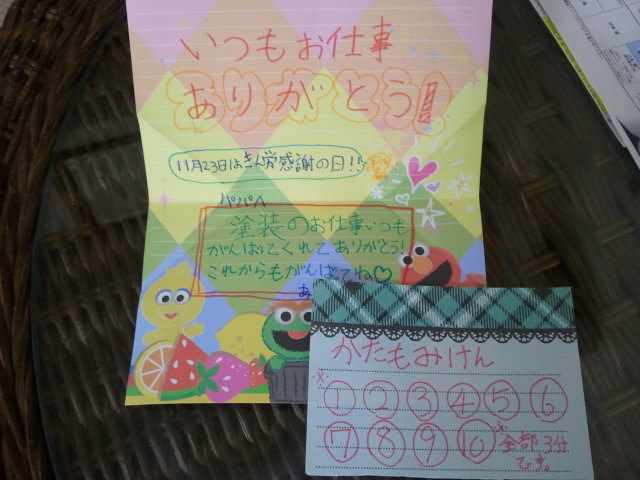 いつもお仕事
ありがとう!
11月23日はきん労感謝の日!!
パパへ
塗装のお仕事いつも
がんばてくれてありがとう!
これからもがんばてね♡
あ
かたもみけん
※
① ② ③ ④ ⑤ ⑥
⑦ ⑧ ⑨ ⑩ ※全部3分
です。